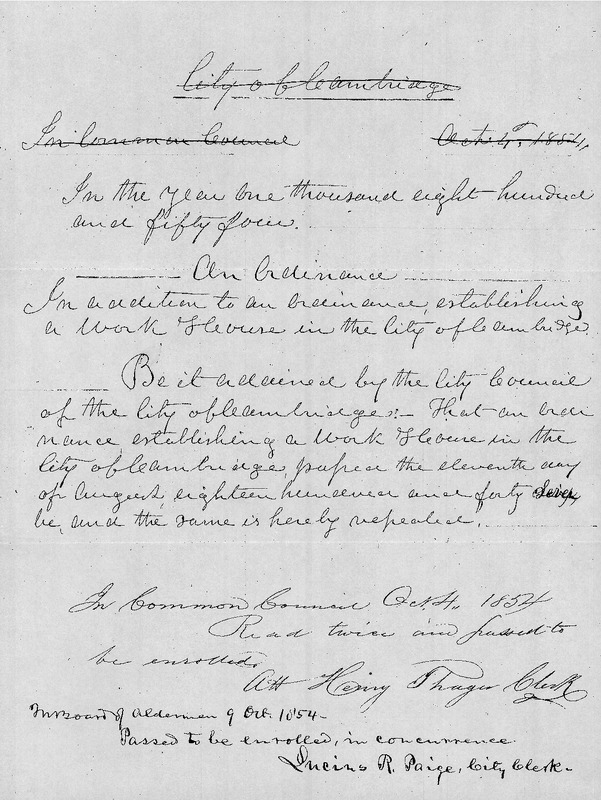 City of Cambridge
In Common Council Oct. 4th. 1854,
In the year one thousand eight hundred
and fifty four.
An Ordinance
In addition to an ordinance, establishing
a Work House in the City of Cambridge
Be it ordained by the City Council
of the City of Cambridge:— That an ordi
nance establishing a Work House in the
City of Cambridge, passed the eleventh day
of August, eighteen hundred and forty seven,
be, and the same is hereby repealed.
In Common Council Oct. 4. 1854
Read twice and passed to
be enrolled.
Att Henry Thayer Clerk
In Board of Aldermen 9 Oct. 1854—
Passed to be enrolled, in concurrence
Lucius R. Paige, City Clerk—